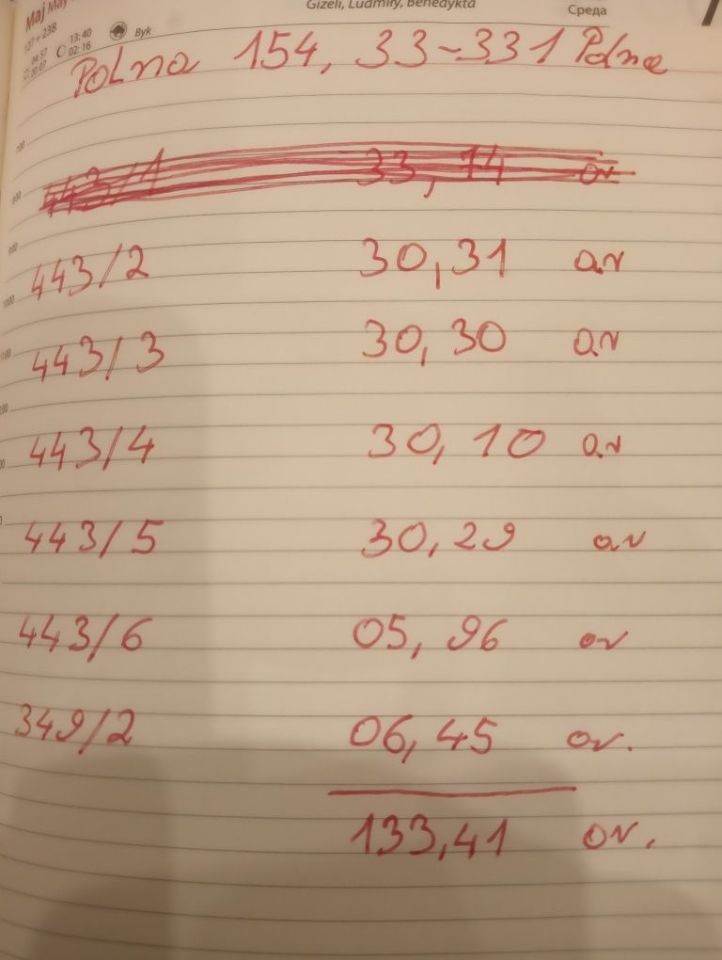 Maj May
Gizeli, Ludmiły, Benedykta
Среда
127 + 238
13:40
02:16
Byk
Polna 154, 33-331 Polna
443/1 33,14 ar
443/2 30,31 ar
443/3 30,30 ar
443/4 30,10 ar
443/5 30,29 ar
443/6 05,96 ar
349/2 06,45 ar.
133,41 ar.